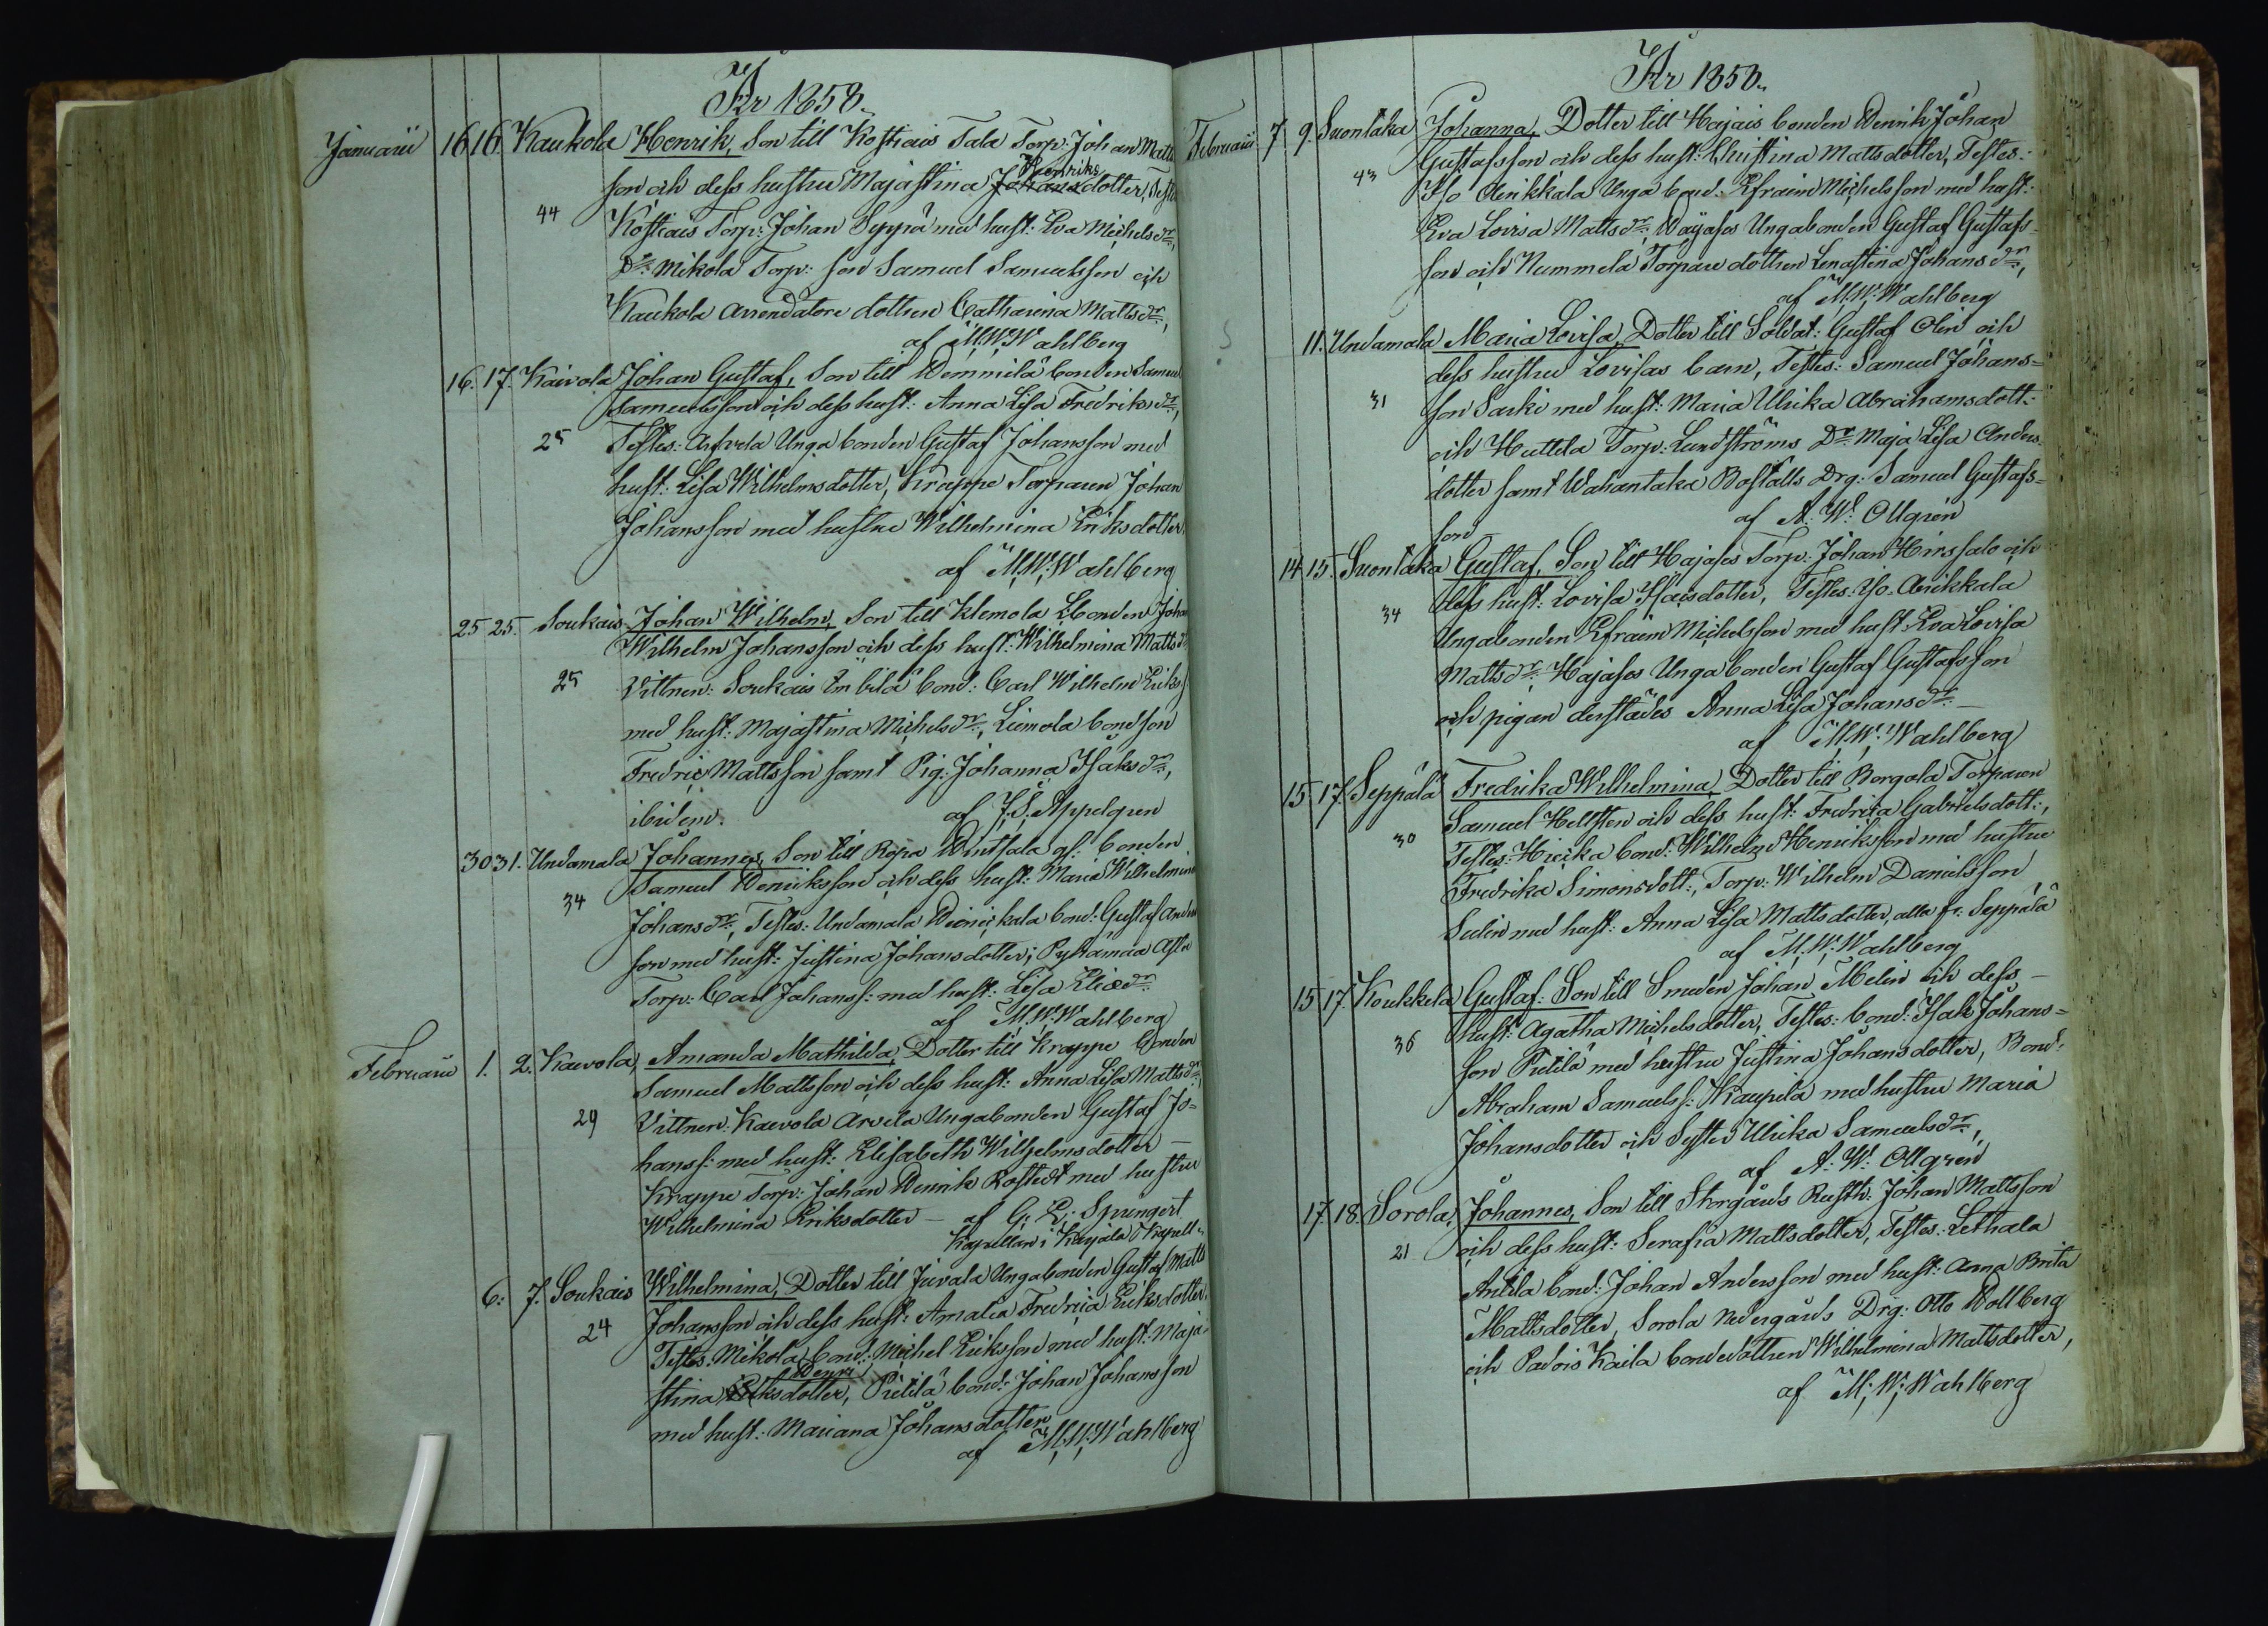 År 1858.
Januarii 16 16. Kaukola Henrik, Son till Kostiais Tala Torp: Johan Matts
son och dess hustru Majastina Johans Henriks dotter, Test
44 Kostiais Torp: Johan Seppä med hust: Eva Michelsdr,
Dr. Mikola Torp: son Samuel Samuelsson och
Kaukola Arrendators dottren Catharina Mattsdr,
af M.W.Wahlberg
16. 17. Kaivola Johan Gustaf, Son till bonden Samuel
Samuelsson och dess hust: Anna Lisa Fredriksdr,
25 Testes: Arfvela Unga bonden Gustaf Johansson med
hust: Lisa Wilhelmsdotter, Krappe Torparen Johan
Johansson med hustru Wilhelmina Eriksdotter
af M.W.Wahlberg
25 25. Soukais Johan Wilhelm, Son till Klemola bonden Johan
Wilhelm Johansson och dess hust: Wilhelmina Mattsd
25 Vittnen: Soukais bond: Carl Wilhelm Eriks
med hust: Majastina Michelsdr, Liimola bondson
Fredric Mattsson samt Pig: Johanna Isaksdr,
ibidem. af J.S. Appelgren
30 31. Undamala Johannes, Son till Röpa gl: bonden
34 Samuel Henriksson och dess hust: Maria Wilhelmina
Johansdr, Testes: Undamala bond: Gustaf Anders
son med hust: Justina Johansdotter; Pyhämaa
Torp: Carl Johanss: med hust: Lisa Eliedr.
af M.W.Wahlberg
Februarii 1. 2. Kaivola, Amanda Mathilda, Dotter till Krappe bonden
Samuel Mattsson och dess hust: Anna Lisa Mattsdr.
29 Vittnen: Kaivola Arvela Ungabonden Gustaf Jo=
hanss: med hust: Elisabeth Wilhelmsdotter —
Krappe Torp: Johan Henrik Rostedt med hustru
Wilhelmina Eriksdotter — af G: E: Spungert
Kapellan i Karjala Kapell:
6: 7. Soukais Wilhelmina, Dotter till Juvala Ungabonden Gustaf Matts
24 Johansson och dess hust: Amalia Fredrica Eriksdotter,
Testes: Mikola bond: Michel Eriksson med hust: Maja
stina Henriksdotter, Pietilä bond: Johan Johansson
med hust: Mariana Johansdotter
af M.W.Wahlberg
År 1858.
Februarii 7 9. Suontaka Johanna, Dotter till Hajais bonden Henrik Johan
43 Gustafsson och dess hust: Christina Mattsdotter, Testes:
Iso Anikkala Unga bond: Efraim Michelsson med hust:
Eva Lovisa Mattsdr; Ungabonden Gustaf Gustafs=
son och Nummela Torpare dottren Lenastina Johansdr,
af M.W.Wahlberg
11. Undamala Maria Lovisa, Dotter till Soldat: Gustaf Olin och
dess hustru Lovisas barn, Testes: Samuel Johans=
31 son Sarki med hust: Maria Ulrika Abrahamsdott:
och Huttila Torp: Lundströms Dr. Maja Lisa Anders
dotter samt Wahantaka Boställs Drg: Samuel Gustafs=
son af A: W: Ollgren
14 15. Suontaka Gustaf, Son till Hajases Torp: Johan Hirssalo och
34 dess hust: Lovisa Isacsdotter, Testes: Iso Anikkala
Ungabonden Efraim Michelsson med hust: Eva Lovisa
Mattsdr. Hajases Unga bonden Gustaf Gustafsson
och pigan derstädes Anna Lisa Johansdr. —
af M.W.Wahlberg
15 17. Seppälä Fredrika Wilhelmina, Dotter till Borgola Torparen
30 Samuel Hellsten och dess hust: Fredrica Gabrielsdott:,
Testes: bond: Wilhelm Henriksson med hustru
Fredrika Simonsdott:, Torp: Wilhelm Danielsson
Sulin med hust: Anna Lisa Mattsdotter, alla fr: Seppälä
af M.W.Wahlberg
15 17. Koukkela Gustaf: Son till Smeden Johan Melin och dess —
36 hust: Agatha Michelsdotter, Testes: bond: Isak Johans=
son Pietilä med hustru Justina Johansdotter, Bond:
Abraham Samuelss: Kaupila med hustru Maria
Johansdotter och Syster Ulrika Samuelsdr,
af A: W: Ollgren
17. 18. Sorola, Johannes, Son till Storgårds Rusth: Johan Mattsson
21 och dess hust: Serafia Mattsdotter, Testes: Lethala
Anttila bond: Johan Andersson med hust: Anna Brita
Mattsdotter, Sorola Nedergårds Drg: Otto Wollberg
och Padois Kaila bondedottren Wilhelmina Mattsdotter,
af M.W.Wahlberg